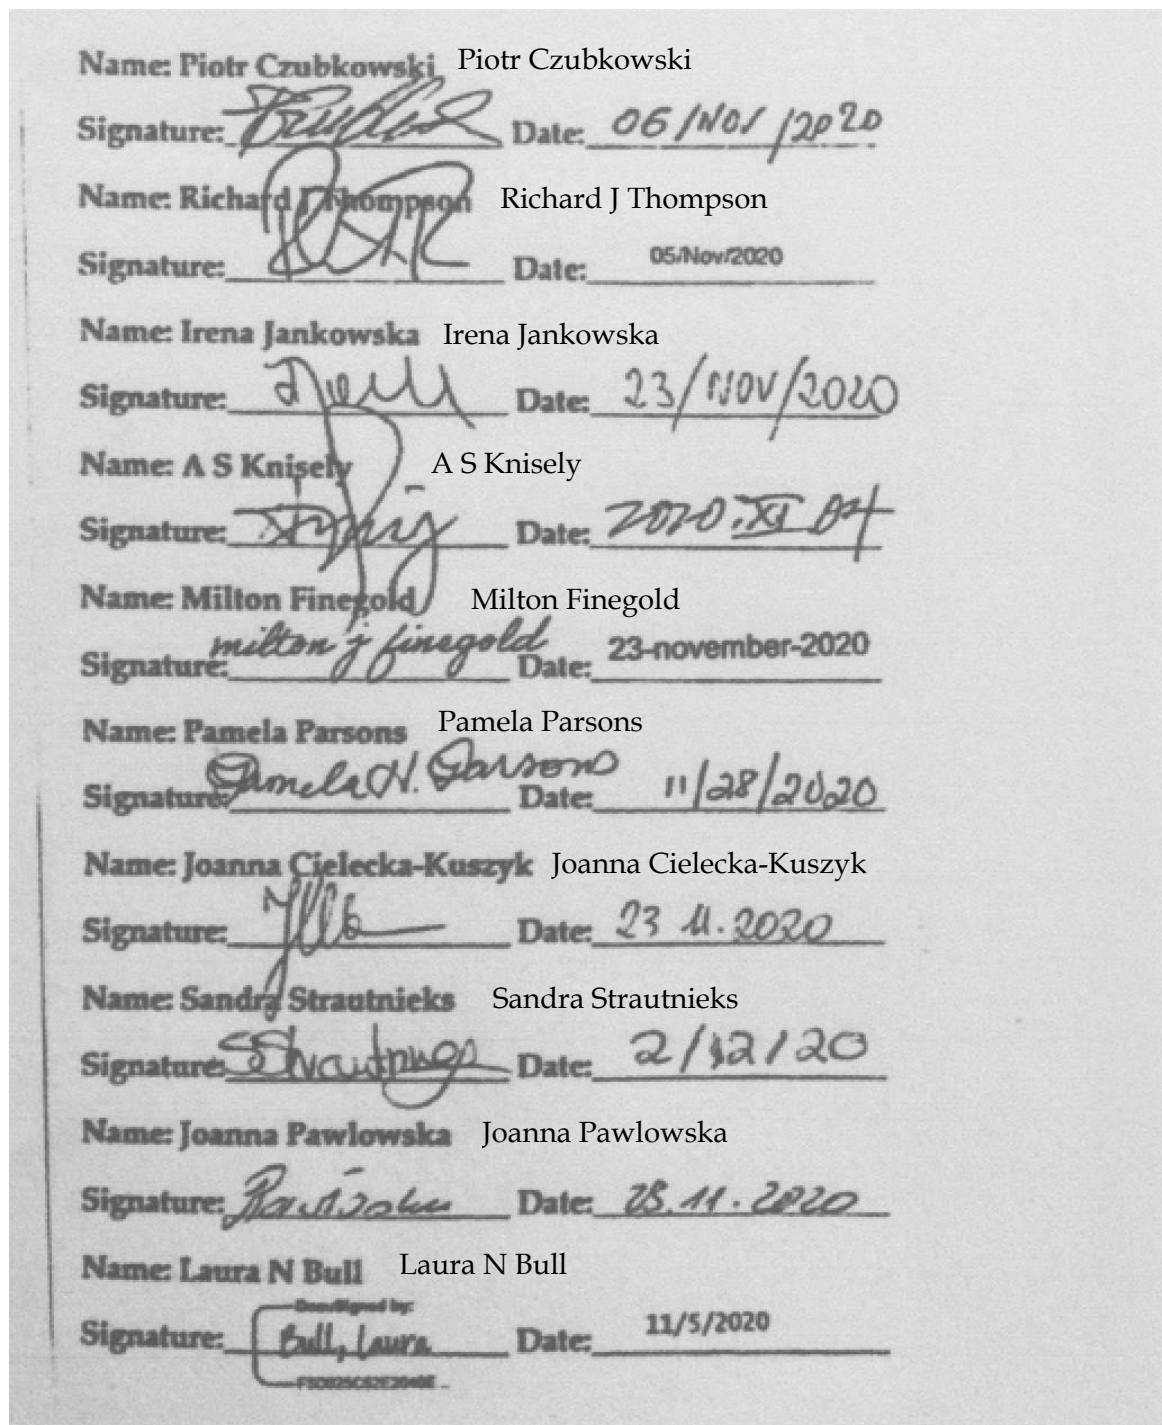 Name: Piotr Czubkowski Piotr Czubkowski
Signature: Date: 06/NOV/2020
Name: Richard J Thompson Richard J Thompson
Signature: Date: 05/Nov/2020
Name: Irena Jankowska Irena Jankowska
Signature: Date: 23/NOV/2020
Name: A S Knisely A S Knisely
Signature: Date: 2020.XI.04
Name: Milton Finegold Milton Finegold
Signature: milton j finegold Date: 23-november-2020
Name: Pamela Parsons Pamela Parsons
Signature: Pamela H. Parsons Date: 11/28/2020
Name: Joanna Cielecka-Kuszyk Joanna Cielecka-Kuszyk
Signature: Date: 23 11.2020
Name: Sandra Strautnieks Sandra Strautnieks
Signature: SStrautnieks Date: 2/12/20
Name: Joanna Pawlowska Joanna Pawlowska
Signature: Date: 11.2020
Name: Laura N Bull Laura N Bull
DocuSigned by:
Signature: Bull, Laura Date: 11/5/2020